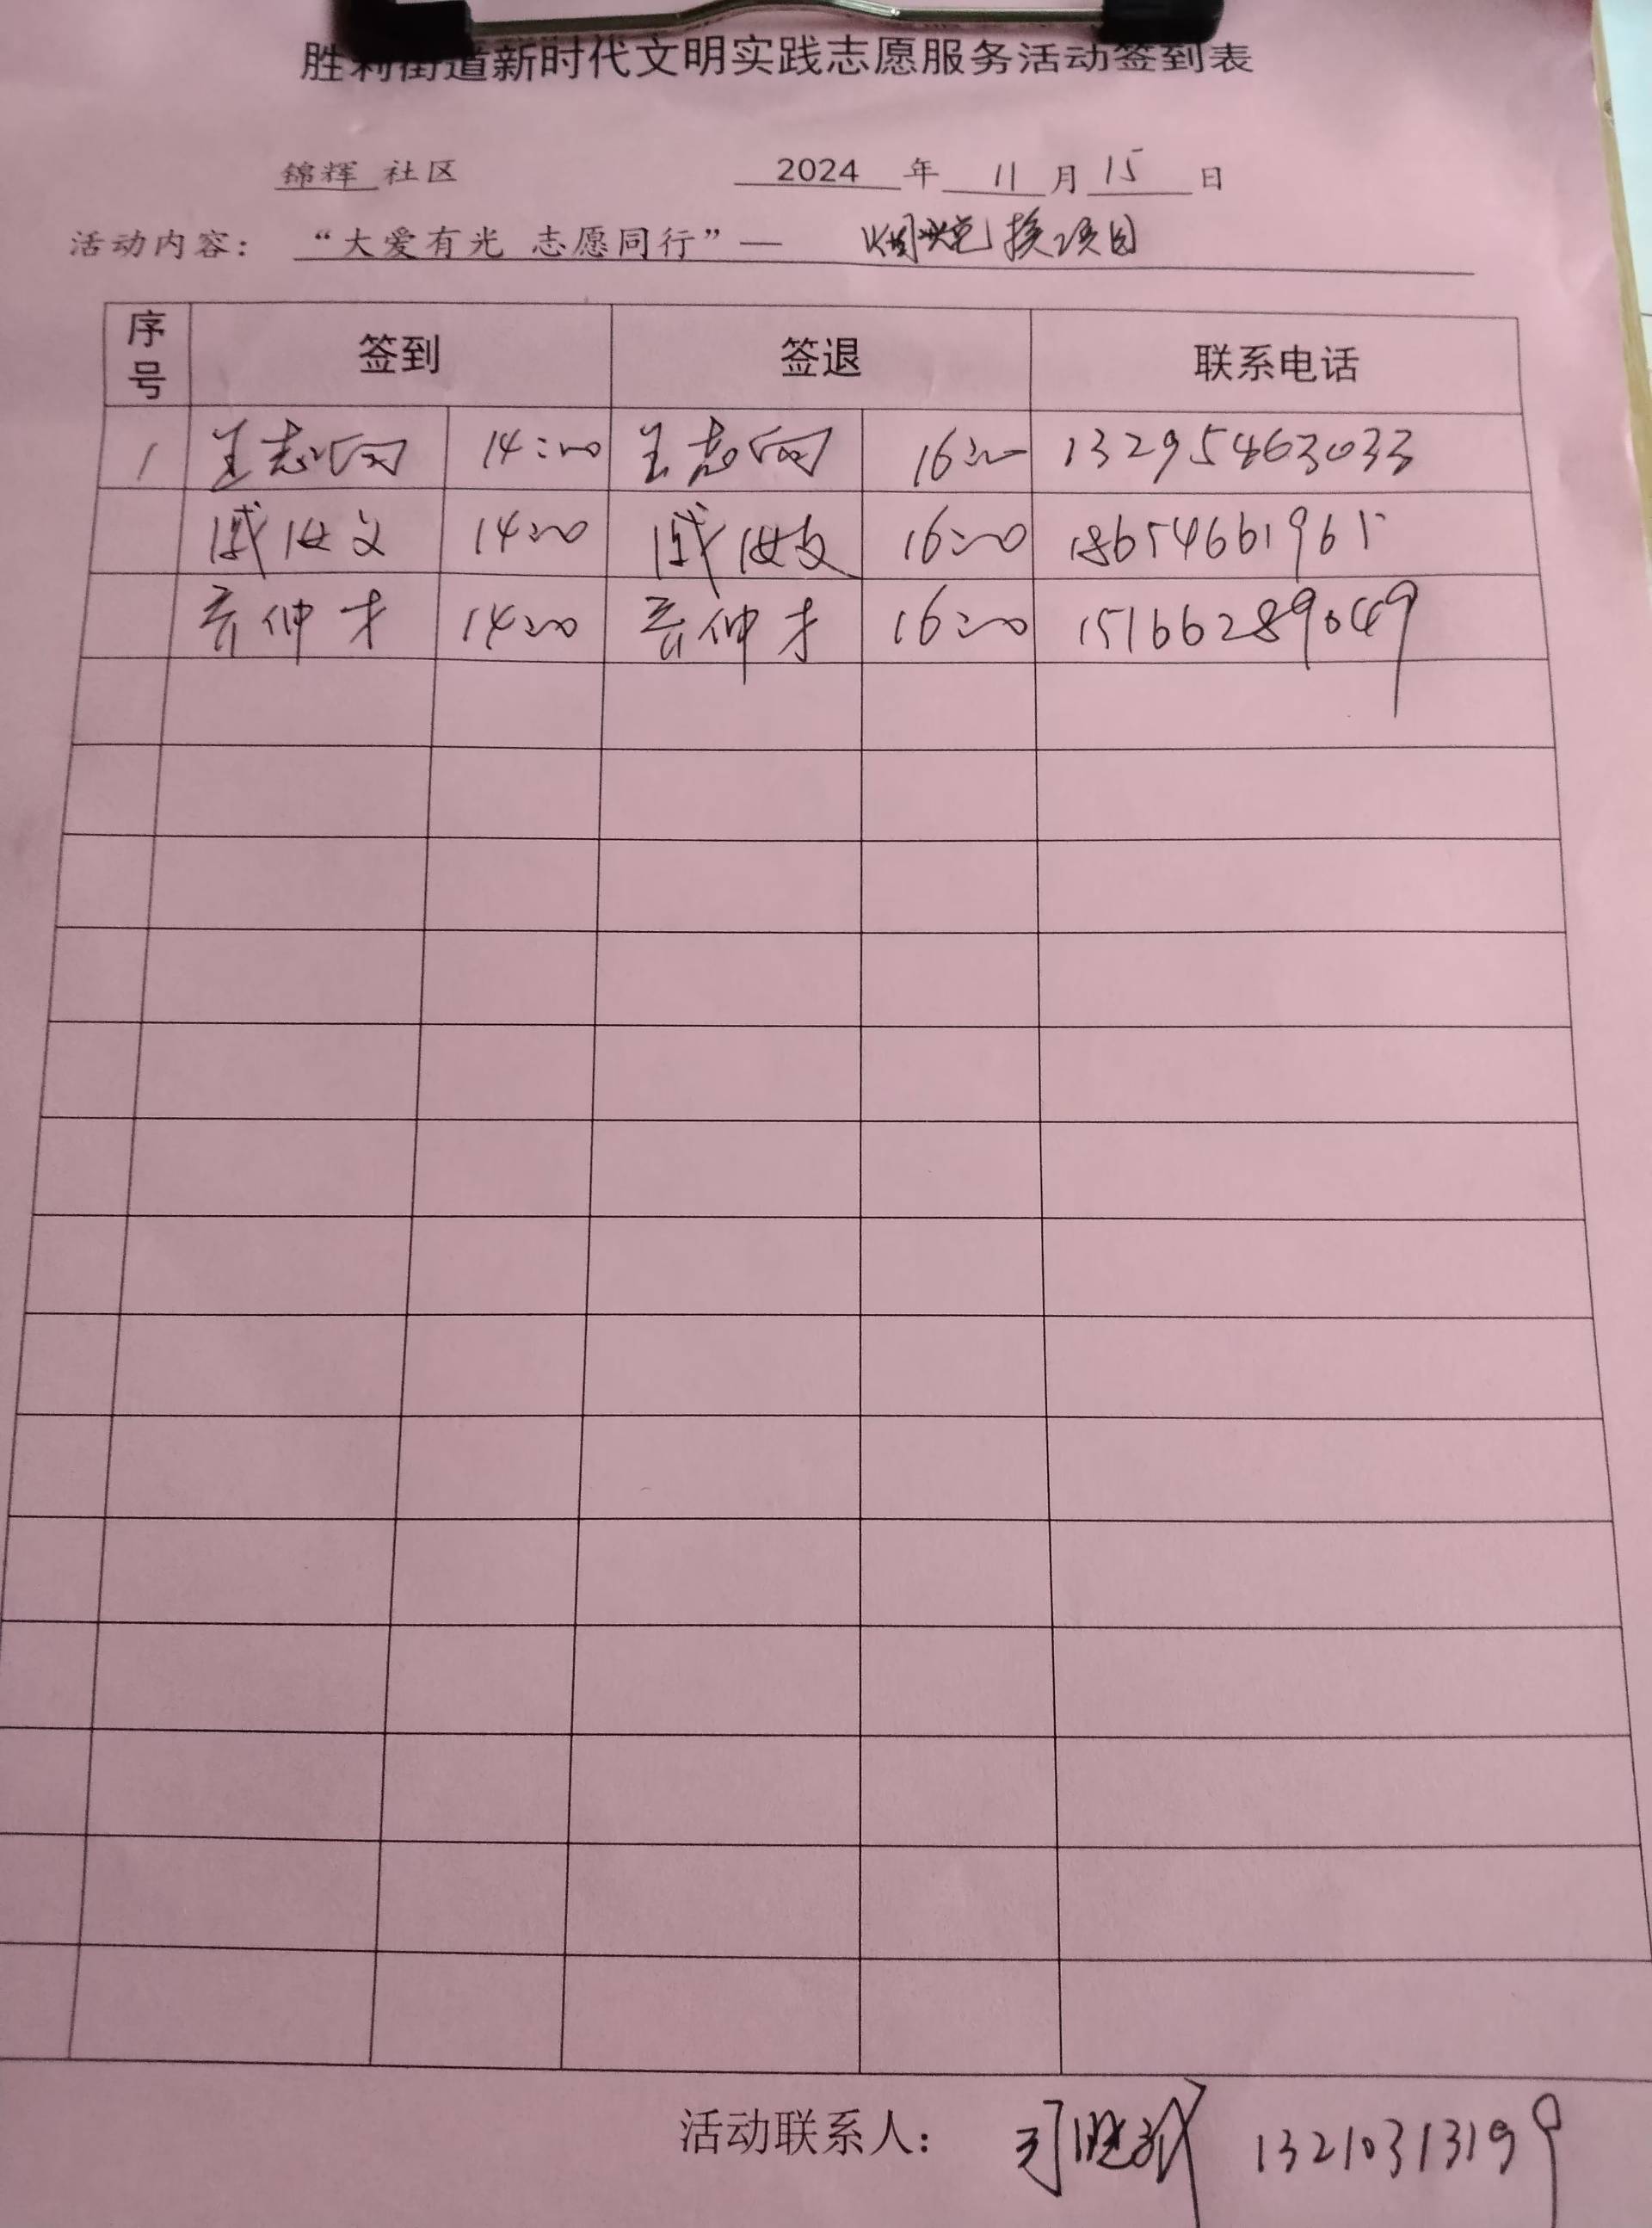 胜利街道新时代文明实践志愿服务活动签到表
锦辉 社区 2024 年 11 月 15 日
活动内容: “大爱有光 志愿同行”— 烟烛兑换项目
序号 签到 签退 联系电话
1 王志 14:00 王志 16:00 13295463033
14:00 16:00 18654661965
仲才 14:00 仲才 16:00 15166289049
活动联系人: 司晓 13210313199